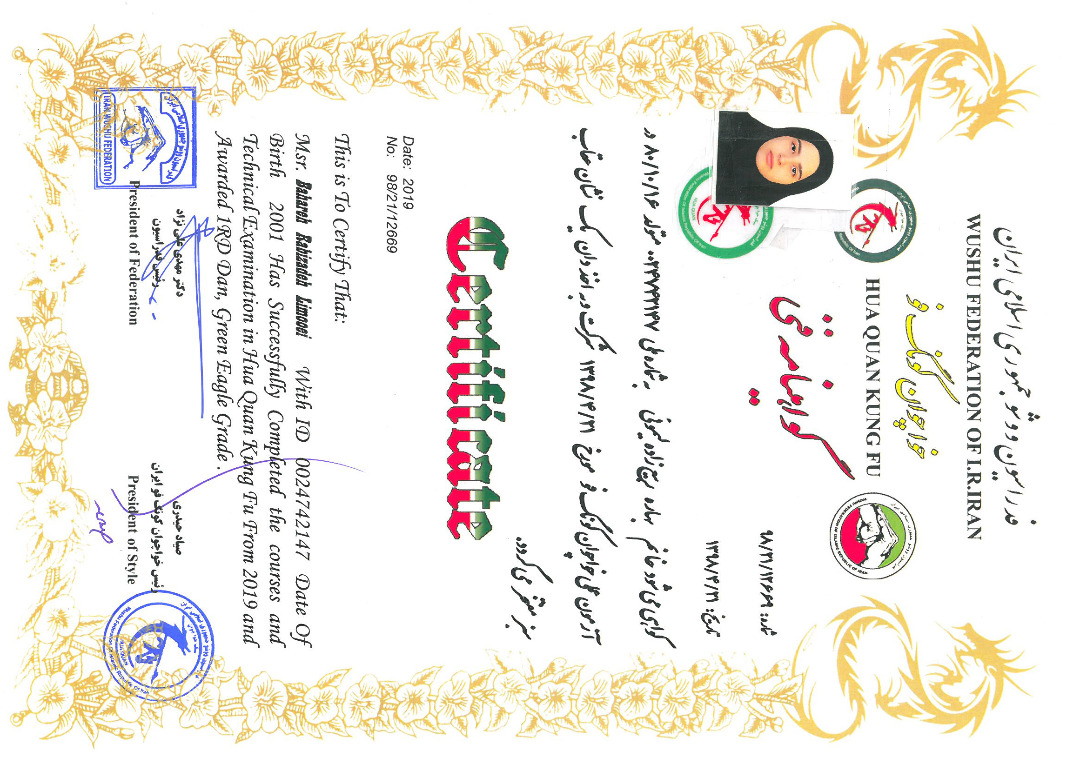 فدراسیون ووشو جمهوری اسلامی ایران
WUSHU FEDERATION OF I.R.IRAN
خواچوان کونگ فو
HUA QUAN KUNG FU
گواهینامه فنی
شماره: ۹۸/۲۱/۱۲۶۶۹
تاریخ: ۱۳۹۸/۴/۳۱
گواهی می شود خانم بهاره ربیع زاده لیموئی به شماره ملی ۰۰۲۴۷۴۲۱۴۷ متولد ۸۰/۱۰/۱۶ در
آزمون فنی خواچوان کونگ فو مورخ ۱۳۹۸/۴/۳۱ شرکت و به اخذ دان یک نشان عقاب
سبز مفتخر می گردد.
Certificate
Date: 2019
No: 98/21/12669
This is To Certify That:
Msr. Bahareh Rabizadeh Limooei With ID 0024742147 Date Of
Birth 2001 Has Successfully Completed the courses and
Technical Examination in Hua Quan Kung Fu From 2019 and
Awarded 1RD Dan, Green Eagle Grade .
دکتر مهدی علی نژاد
رئیس فدراسیون
President of Federation
صیاد حیدری
رئیس خواچوان کونگ فو ایران
President of Style
IRAN WUSHU FEDERATION